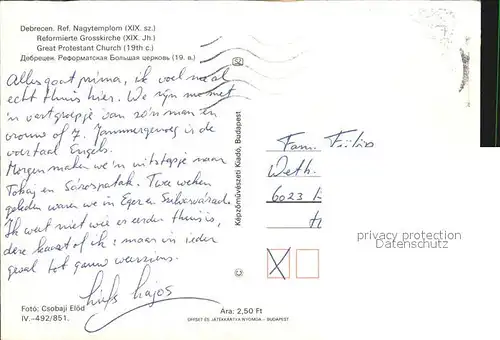 Debrecen. Ref. Nagytemplom (XIX. sz.)
Reformierte Grosskirche (XIX. Jh.)
Great Protestant Church (19th c.)
Дебрецен. Реформатская Большая церковь (19. в.)
Alles gaat prima, ik voel me al
echt thuis hier. We zijn nu met
'n aardig groepje van zo'n man en
vrouw of 7. Jammergenoeg is de
voertaal Engels.
Morgen maken we 'n uitstapje naar
Tokaj en Sárospatak. Twee weken
geleden waren we in Eger en Szilvásvárad.
Ik weet niet wie er eerder thuis is,
deze kaart of ik: maar in ieder
geval tot gauw weerziens.
liefs Lajos
Fotó: Csobaji Előd
IV.-492/851.
Ára: 2,50 Ft
OFFSET ÉS JÁTÉKKÁRTYA NYOMDA - BUDAPEST
Képzőművészeti Kiadó, Budapest
Fam.
Weth.
6023
privacy protection
Datenschutz